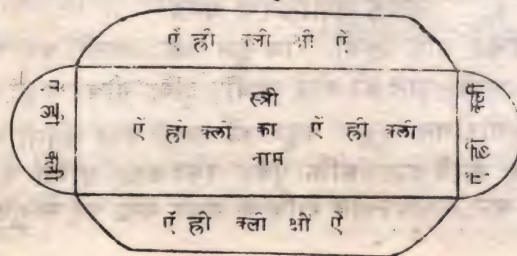 ऐं ह्री क्ली श्री ऐं
ऐं ह्री क्ली
स्त्री
ऐं ह्री क्लो का ऐं ह्री क्ली
नाम
ऐं ह्री क्ली
ऐं ह्री क्ली श्रीं ऐं